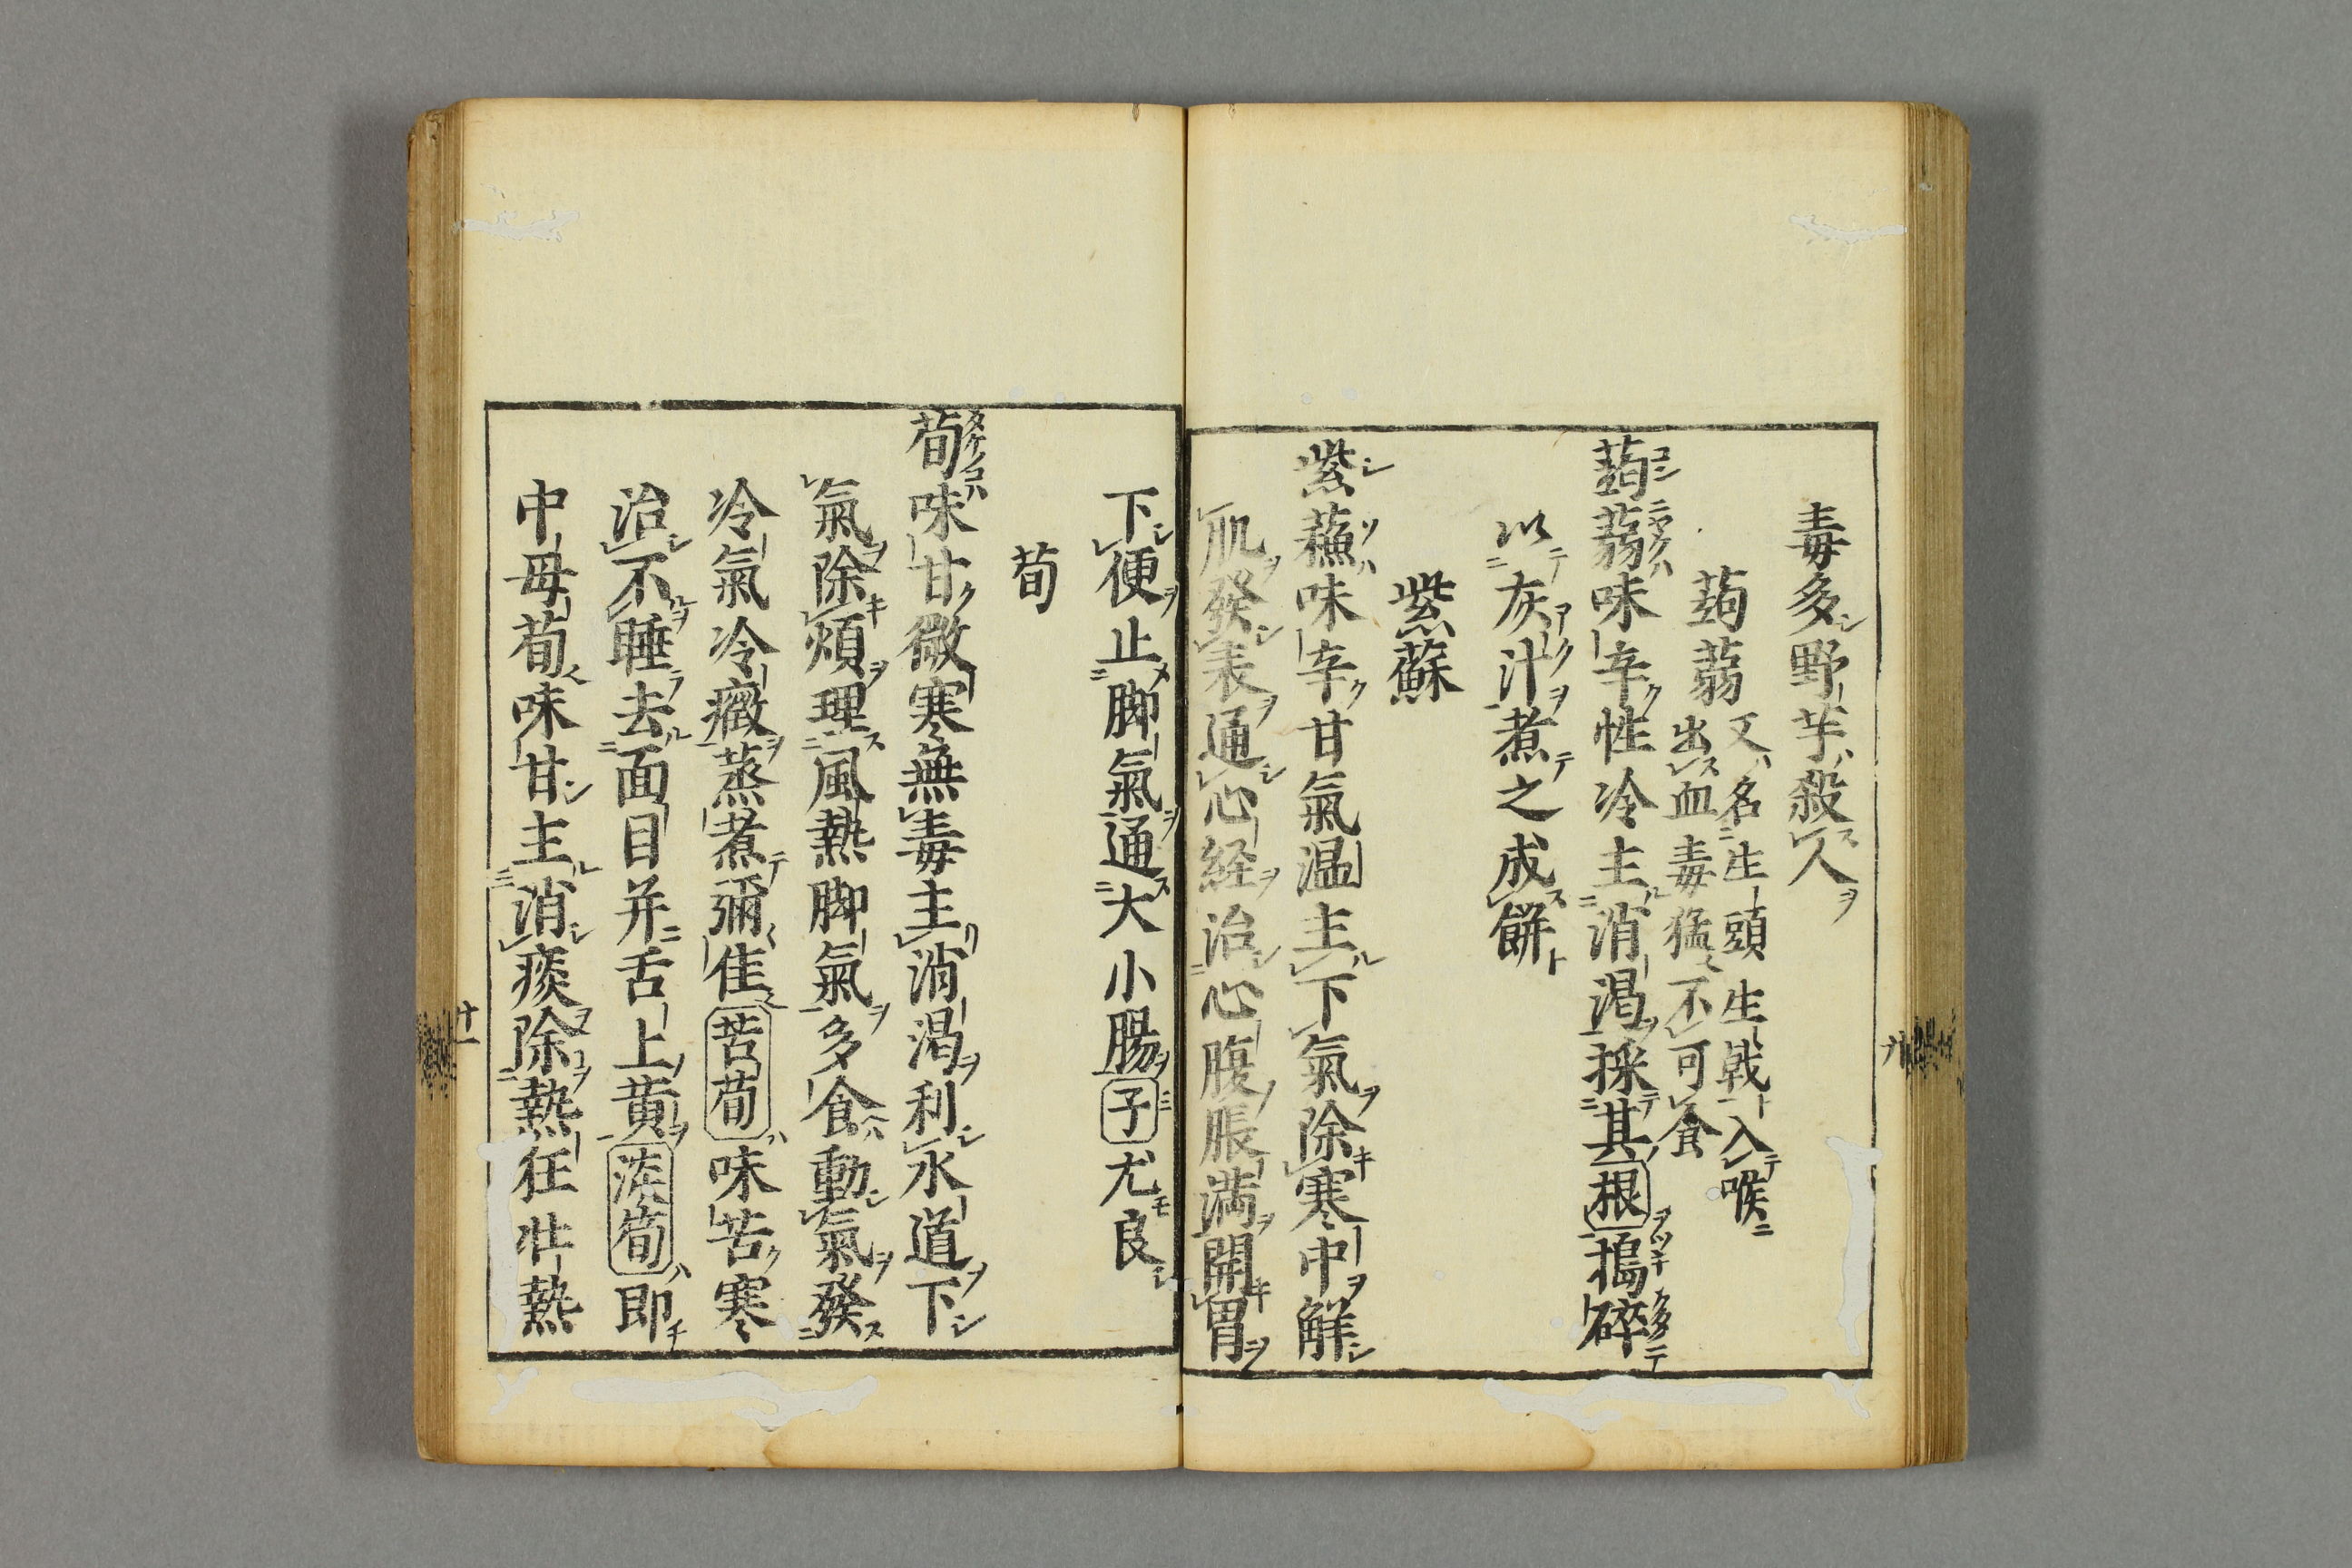 毒多野芋殺人
蒟蒻
又名生頭生戟入喉
出血毒猛不可食
蒟蒻味辛性冷主消渇採其根搗碎
以灰汁煮之成餅
紫蘇
紫蘓味辛甘氣温主下氣除寒中觧
肌發表通心経治心腹脹満開胃
下便止脚氣通大小腸子尤良
荀
荀味甘微寒無毒主消渇利水道下
氣除煩理風熱脚氣多食動氣發
冷氣冷癥蒸煮彌佳苦荀味苦寒
治不睡去面目并舌上黄淡筍即
中母荀味甘主消痰除熱狂壮熱
十一